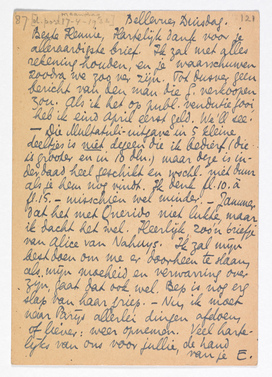 87 121
Bellevue, Dinsdag.
Beste Kennie, Hartelijk dank voor je
alleraardigste brief. Ik zal met alles
rekening houden, en je waarschuwen
zoodra we zoover zijn. Tot dusver geen
bericht van den man die E. verkoopen
zou. Als ik het op publ. venduties gooi
heb ik eind April eerst geld. We'll see.
— Die Multatuli-uitgave in 5 kleine
deeltjes is niet degeen die ik bedierf (die
is grooter en in 10 dln.) maar deze is in-
derdaad heel geschikt en wschl. niet duur
als je hem nog vindt. Ik denk fl. 10. à
fl. 15. — misschien wel minder. — Jammer
dat het met Querido niet lukte, maar
ik dacht het wel. Heerlijk zoo'n briefje
van Alice van Nahuys. Ik zal mijn
best doen om me er doorheen te slaan,
als mijn moeheid en verwarring over
zijn, gaat dat ook wel. Bep is nog erg
slap van haar griep. — Nu, ik moet
naar Parijs allerlei dingen afdoen,
of liever: weer opnemen. Veel harte-
lijks van ons voor jullie, de hand
van je E.